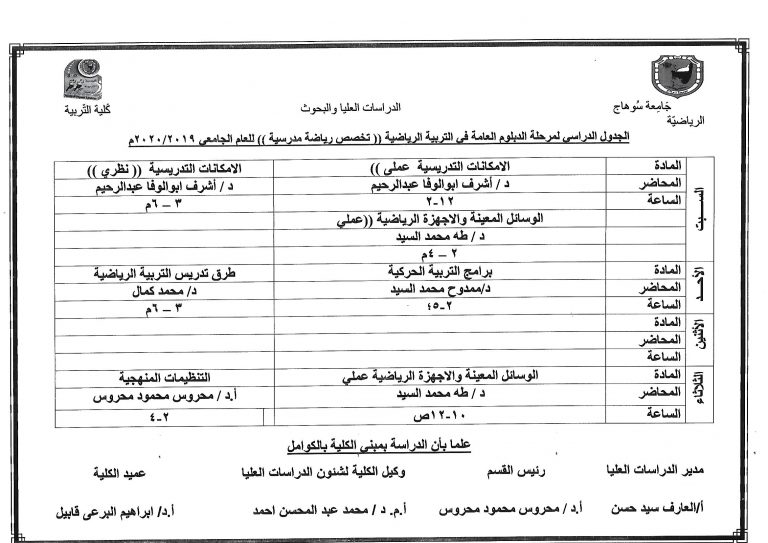 جامعة سُوهاج
الدراسات العليا والبحوث
كلية التربية
الرياضية
الجدول الدراسي لمرحلة الدبلوم العامة في التربية الرياضية (( تخصص رياضة مدرسية )) للعام الجامعى ٢٠٢٠/٢٠١٩م
السبت
المادة الامكانات التدريسية عملى )) الامكانات التدريسية (( نظري ))
المحاضر د / أشرف ابوالوفا عبدالرحيم د / أشرف ابوالوفا عبدالرحيم
الساعة ١٢-٢ ٣ – ٦م
الوسائل المعينة والاجهزة الرياضية ((عملي
د / طه محمد السيد
٢ – ٤م
الأحد
المادة برامج التربية الحركية طرق تدريس التربية الرياضية
المحاضر د/ممدوح محمد السيد د/ محمد كمال
الساعة ٢-٤٥ ٣ – ٦م
الأثنين
المادة
المحاضر
الساعة
الثلاثاء
المادة الوسائل المعينة والاجهزة الرياضية عملي التنظيمات المنهجية
المحاضر د / طه محمد السيد أ.د / محروس محمود محروس
الساعة ١٠-١٢ص ٢-٤
علما بأن الدراسة بمبني الكلية بالكوامل
مدير الدراسات العليا رئيس القسم وكيل الكلية لشئون الدراسات العليا عميد الكلية
أ/العارف سيد حسن أ.د / محروس محمود محروس أ.م. د / محمد عبد المحسن احمد أ.د/ ابراهيم البرعى قابيل